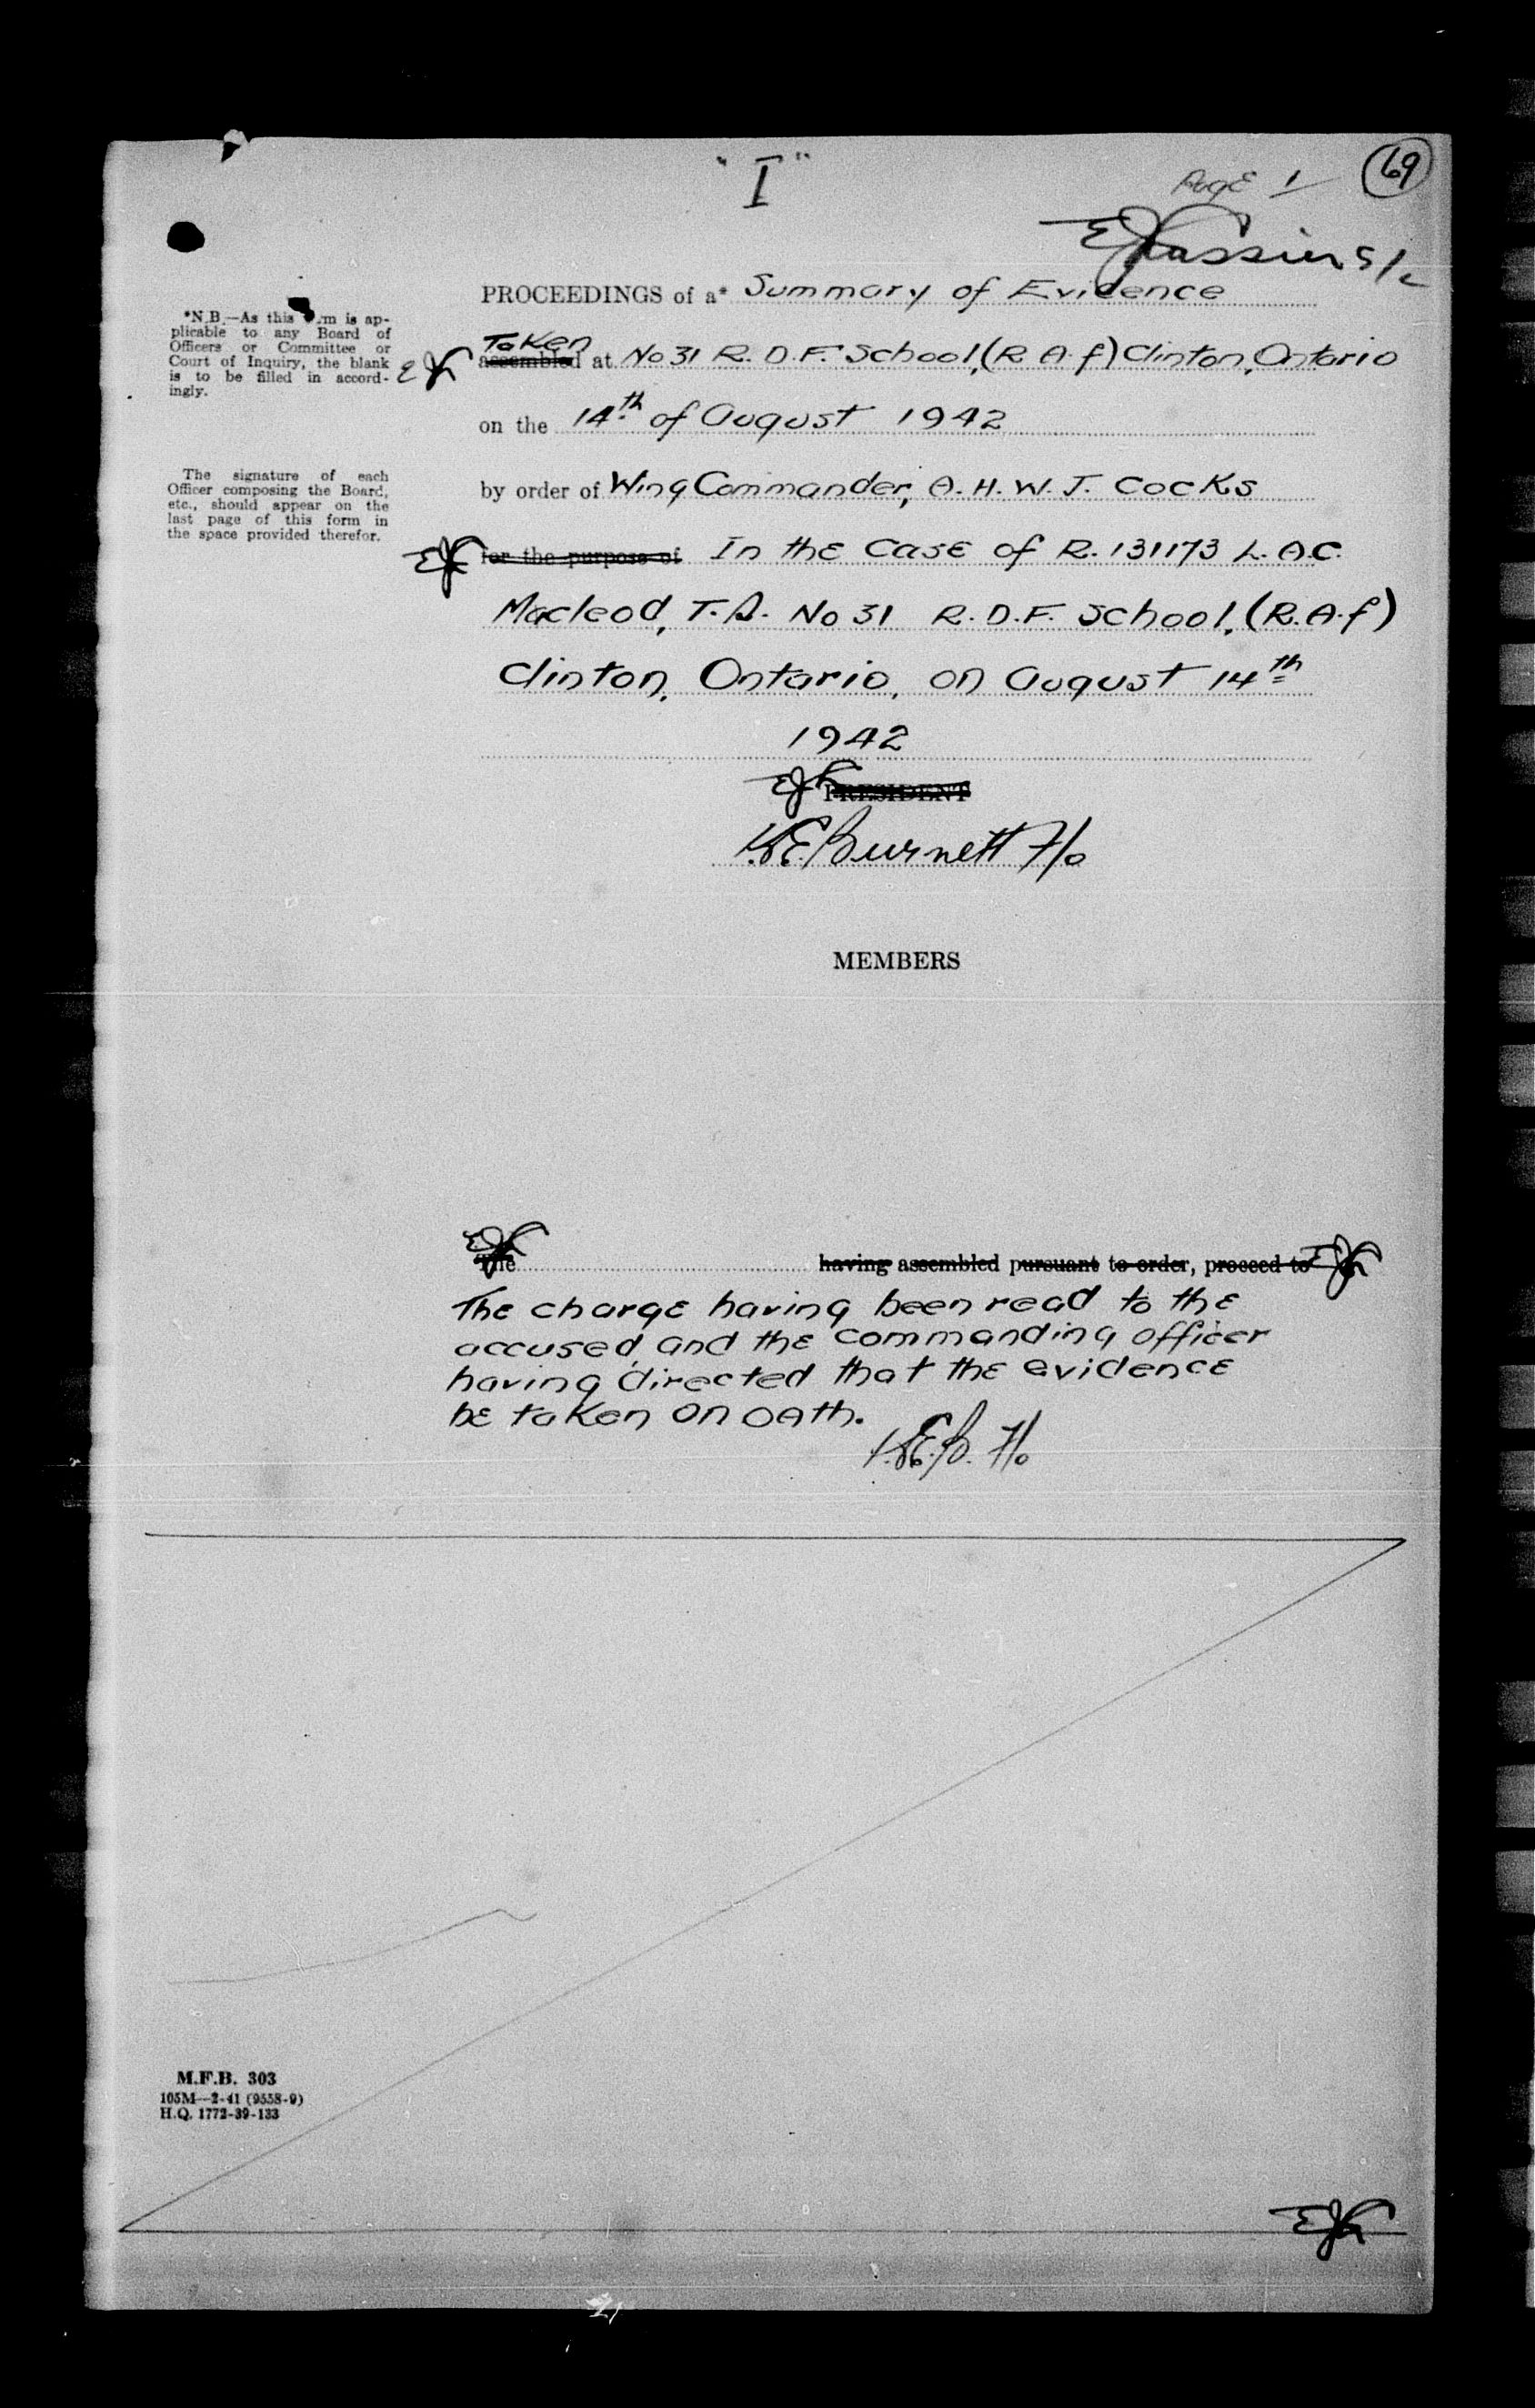 "I"
Page 1
69
S/L
PROCEEDINGS of a* Summary of Evidence
Taken
assembled at No 31 R. D. F. School, (R A f) Clinton, Ontario
on the 14th of August 1942
by order of Wing Commander, A. H. W. J. Cocks
for the purpose of In the Case of R. 131173 L. A.C.
Macleod, T. A. No 31 R. D. F. School, (R.A.f)
Clinton, Ontario, on August 14th
1942
*N.B.—As this form is ap-
plicable to any Board of
Officers or Committee or
Court of Inquiry, the blank
is to be filled in accord-
ingly.
The signature of each
Officer composing the Board,
etc., should appear on the
last page of this form in
the space provided therefor.
PRESIDENT
Burnett F/o
MEMBERS
The having assembled pursuant to order, proceed to
The charge having been read to the
accused, and the commanding officer
having directed that the evidence
be taken on oath.
F/o
M.F.B. 303
105M—2-41 (9558-9)
H.Q. 1772-39-133